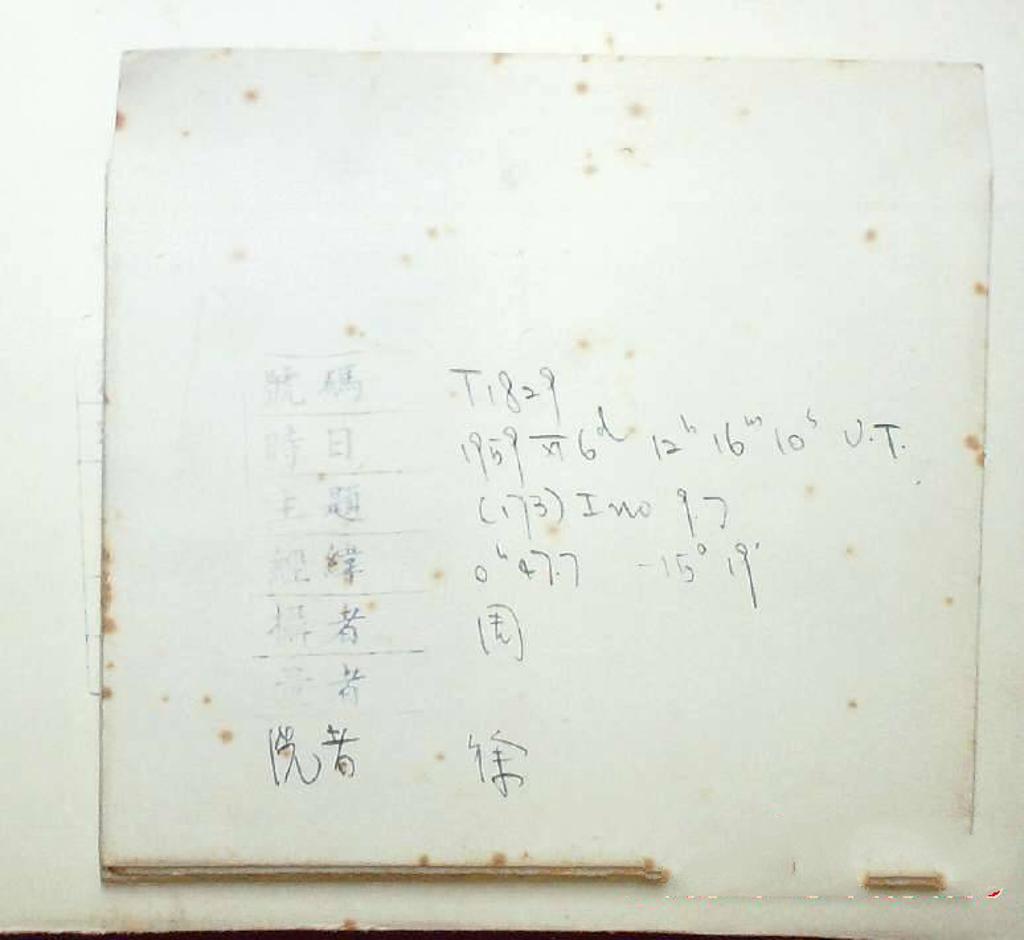 號碼 T1829
時日 1959 XI 6ᵈ 12ʰ 16ᵐ 10ˢ U.T.
主題 (173) Ino 9.7
經緯 0ʰ 47.7 -15° 19'
攝者 周
者
者 徐